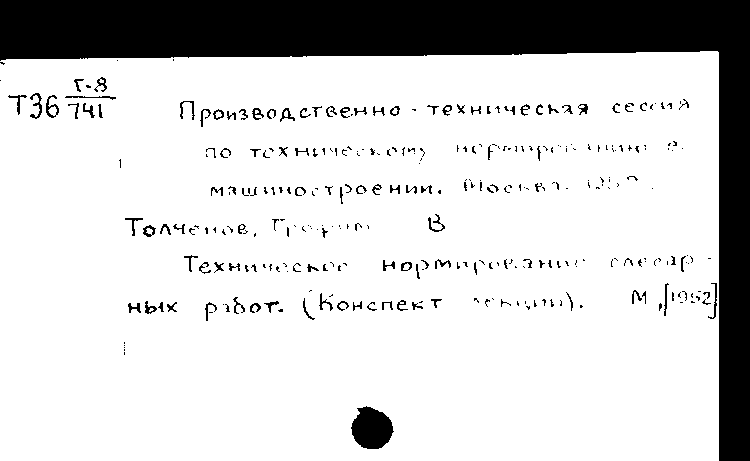 Т36 Г-8
741
Производственно-техническая сессия
по техническому нормированию в
машиностроении. Москва. 1952.
Толченов, Трофим В
Техническое нормирование слесар-
ных работ. (Конспект лекции). М.,[1952]